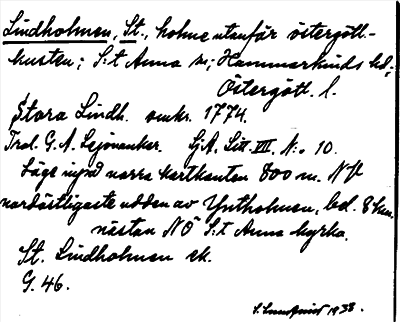 Lindholmen, St., holme utanför östergöt-
kusten; S:t Anna sn; Hammarkinds hd;
Östergötl. l.
Stora Lindh. omkr. 1774.
Trol. G. A. Leijonancker. SjA, Litt. VII, N:o 10.
Läge invid norra kartkanten 800 m. NV
nordöstligaste udden av Yxtholmen, bel. 8 km.
nästan NÖ S:t Anna kyrka.
St. Lindholmen ek.
G. 46.
1938.